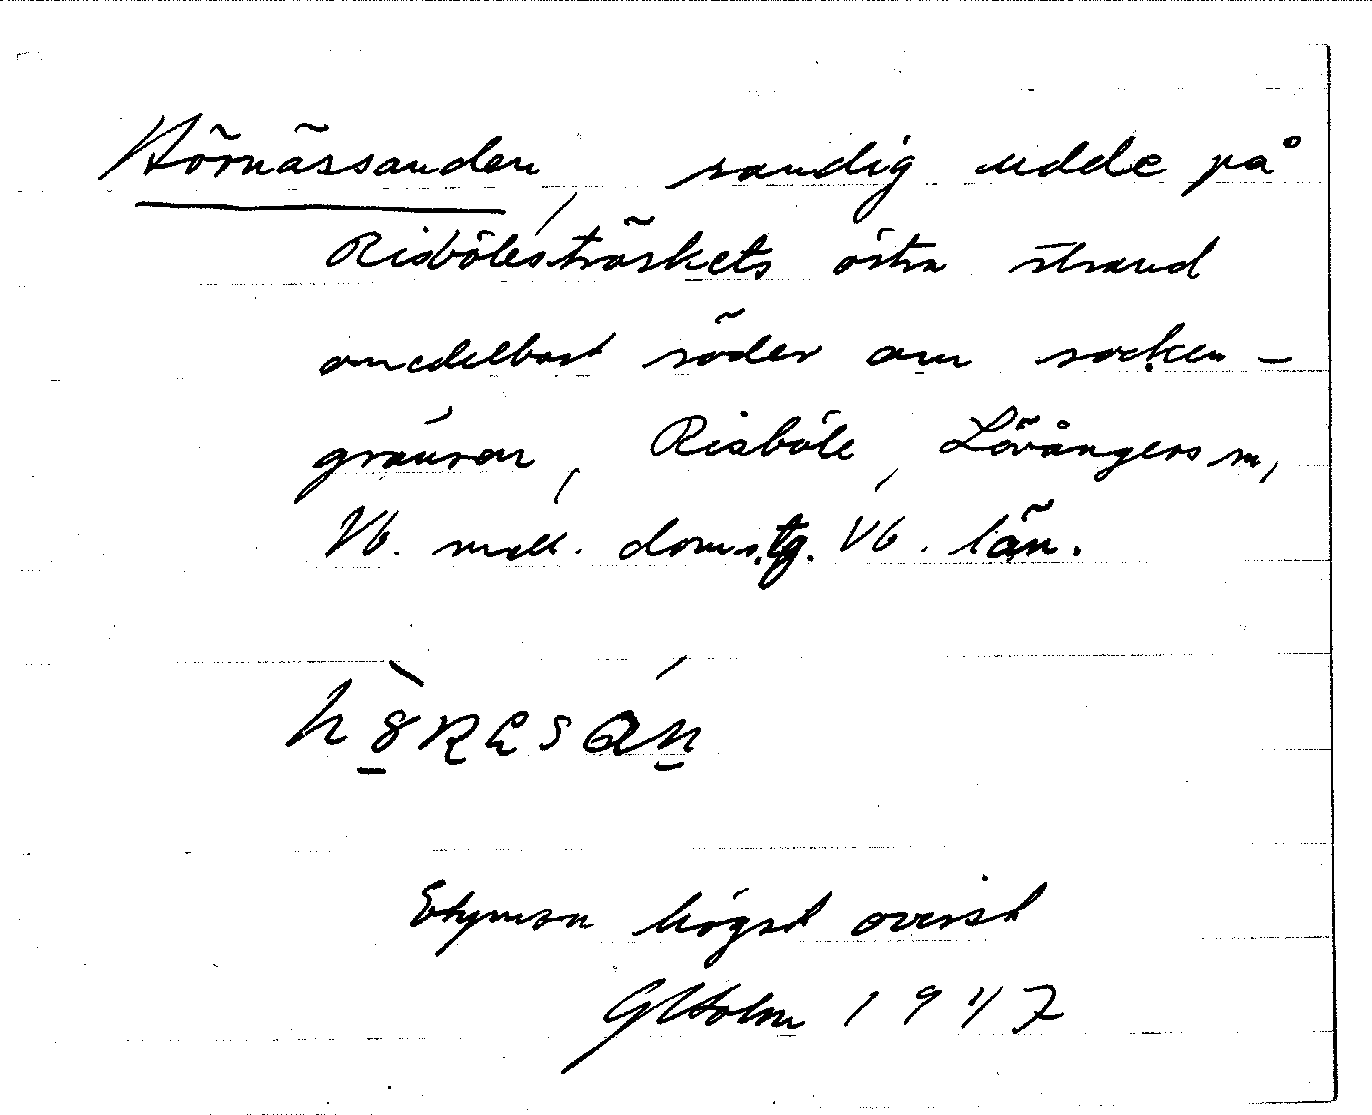 Hörnässanden, sandig udde på
Risbölesträskets östra strand
omedelbart söder om socken-
gränsen, Risböle, Lövångers sn,
Vb. mell. doms.tg. Vb. län.
Etymon högst ovisst
G Holm 1947